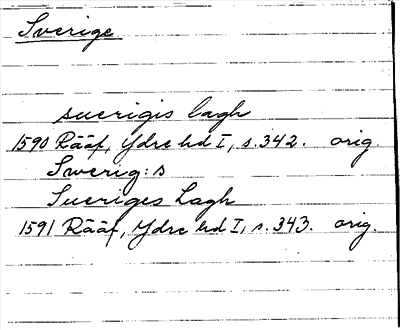 Sverige
suerigis lagh
1590 Rääf, Ydre hd I, s. 342. orig.
Swerig:s
Sueriges Lagh
1591 Rääf, Ydre hd I, s. 343. orig.